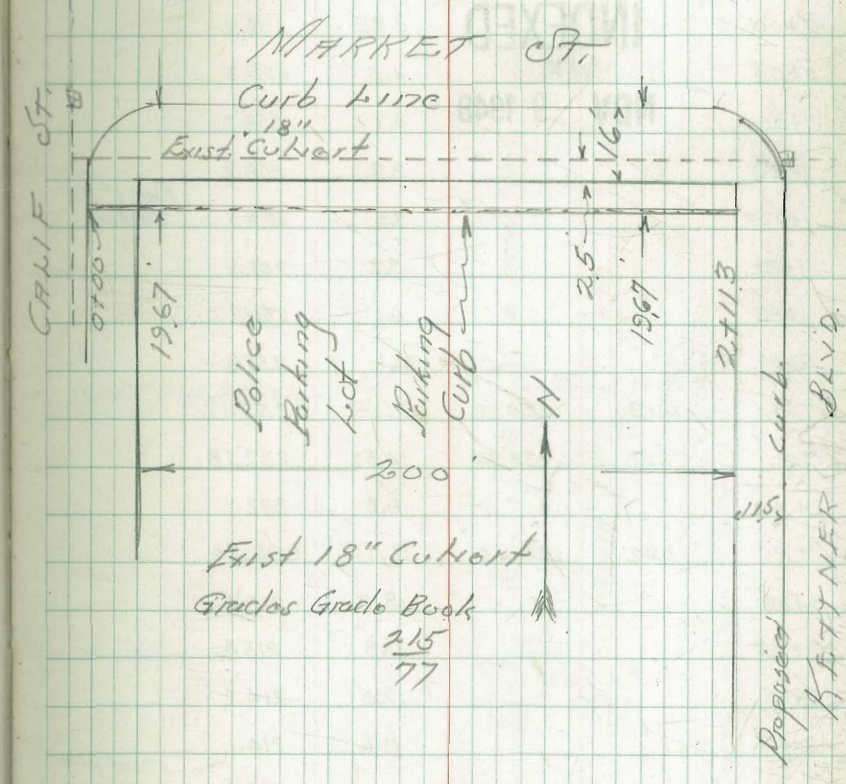 MARKET ST.
Curb Line
18"
Exist. Culvert
16'
CALIF ST.
0+00
19.67'
2.5
19.67'
2+11.3
Police
Parking
Lot
Parking
Curb
N
200'
11.5
Exist 18" Culvert
Grades Grade Book
215
77
Proposed Curb
KETTNER BLVD.
INDEXED